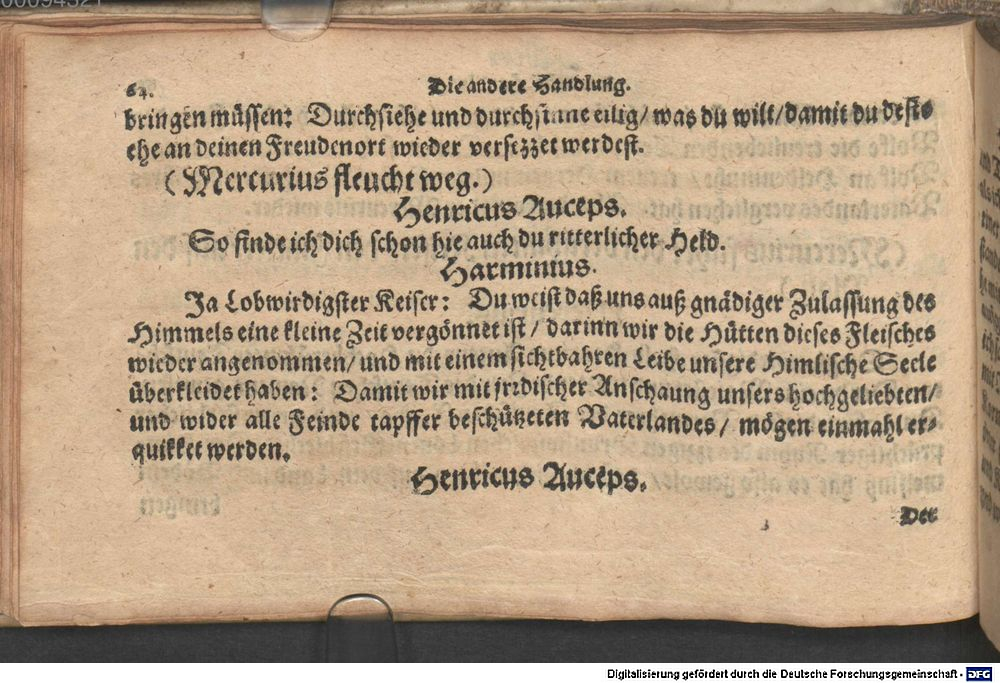 00094321
64. Die andere Handlung.
bringen müssen: Durchsiehe und durchsinne eilig/ was du wilt/ damit du desto
ehe an deinen Freudenort wieder versezzet werdest.
(Mercurius fleucht weg.)
Henricus Auceps.
So finde ich dich schon hie auch du ritterlicher Held.
Harminius.
Ja Lobwirdigster Keiser: Du weist daß uns auß gnädiger Zulassung des
Himmels eine kleine Zeit vergönnet ist/ darinn wir die Hütten dieses Fleisches
wieder angenommen/ und mit einem sichtbahren Leibe unsere Himlische Seele
überkleidet haben: Damit wir mit irrdischer Anschaung unsers hochgeliebten/
und wider alle Feinde tapffer beschützeten Vaterlandes/ mögen einmahl er-
quikket werden.
Henricus Auceps.
Der
Digitalisierung gefördert durch die Deutsche Forschungsgemeinschaft - DFG